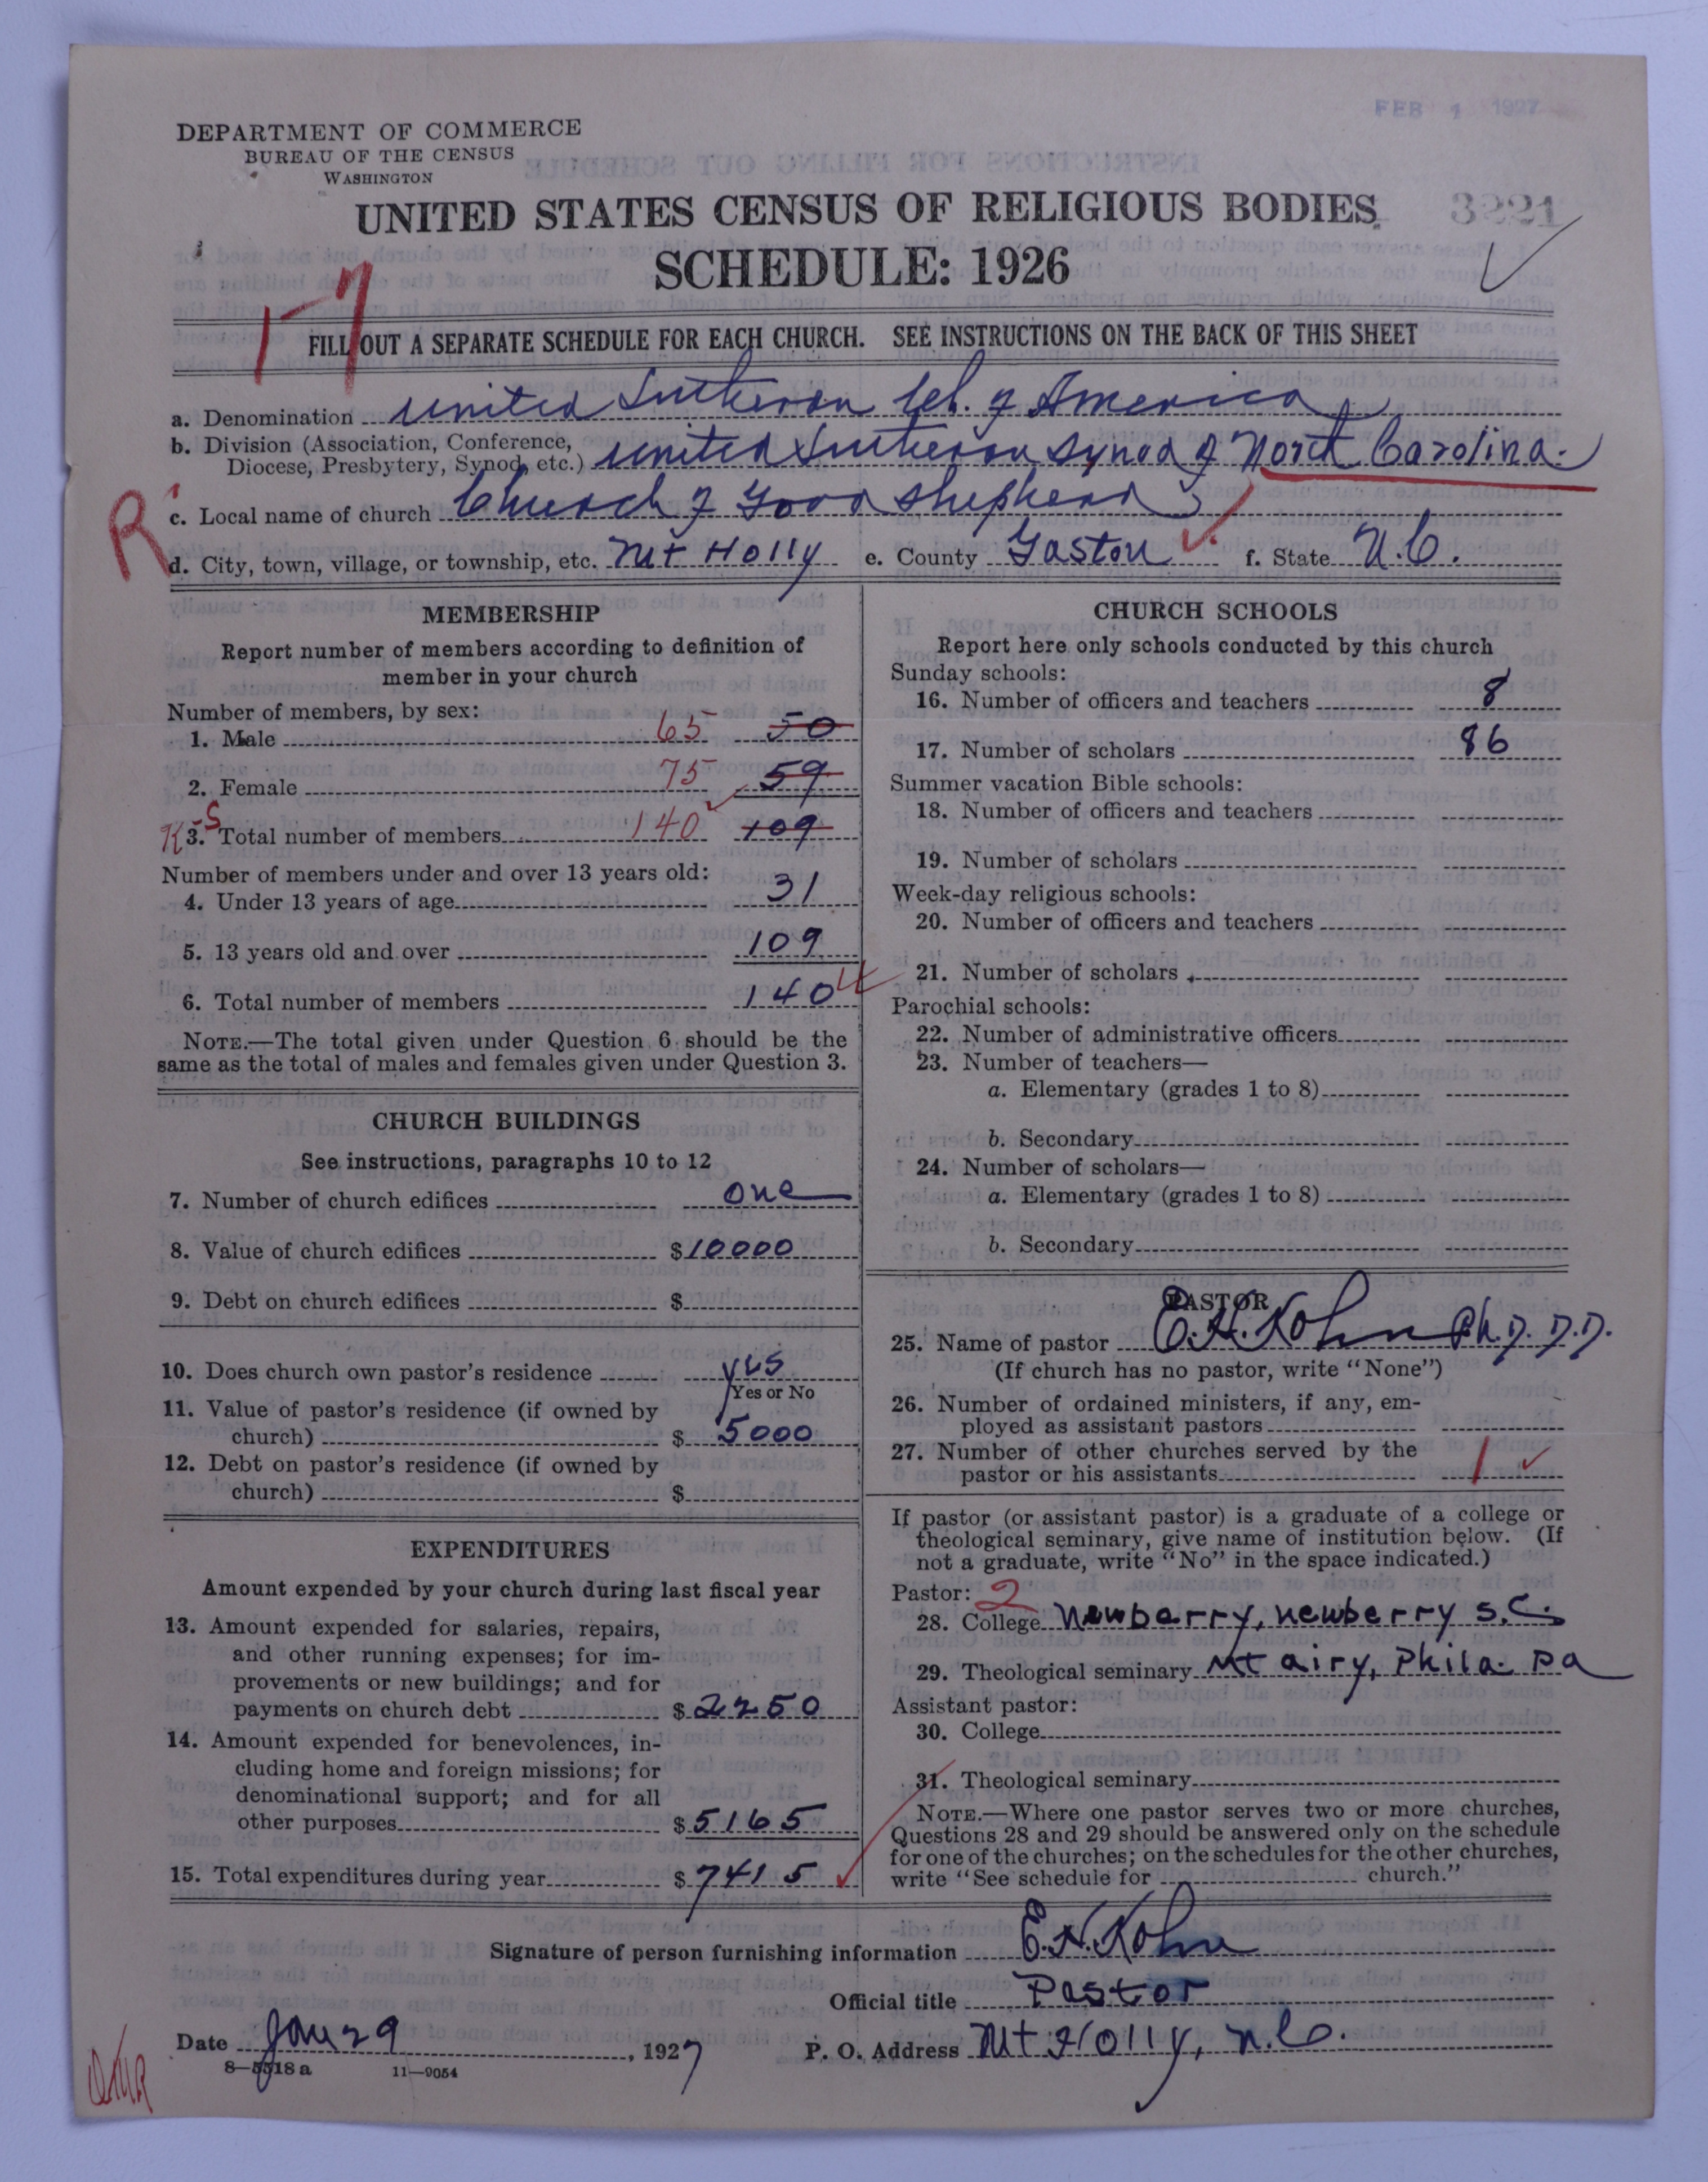 FEB 1 1927
DEPARTMENT OF COMMERCE
BUREAU OF THE CENSUS
WASHINGTON
UNITED STATES CENSUS OF RELIGIOUS BODIES
3221
SCHEDULE: 1926
17
FILL OUT A SEPARATE SCHEDULE FOR EACH CHURCH. SEE INSTRUCTIONS ON THE BACK OF THIS SHEET
a. Denomination United Lutheran Ch. of America
b. Division (Association, Conference,
Diocese, Presbytery, Synod, etc.) United Lutheran Synod of North Carolina.
R
c. Local name of church Church of Good Shepherd
d. City, town, village, or township, etc. Mt Holly e. County Gaston f. State N.C.
MEMBERSHIP
Report number of members according to definition of
member in your church
Number of members, by sex:
1. Male 65 50
2. Female 75 59
3. Total number of members 140 109
Number of members under and over 13 years old:
4. Under 13 years of age 31
5. 13 years old and over 109
6. Total number of members 140
NOTE.—The total given under Question 6 should be the
same as the total of males and females given under Question 3.
CHURCH BUILDINGS
See instructions, paragraphs 10 to 12
7. Number of church edifices one
8. Value of church edifices $10000
9. Debt on church edifices $
10. Does church own pastor's residence yes
Yes or No
11. Value of pastor's residence (if owned by
church) $ 5000
12. Debt on pastor's residence (if owned by
church) $
EXPENDITURES
Amount expended by your church during last fiscal year
13. Amount expended for salaries, repairs,
and other running expenses; for im-
provements or new buildings; and for
payments on church debt $2250
14. Amount expended for benevolences, in-
cluding home and foreign missions; for
denominational support; and for all
other purposes $5165
15. Total expenditures during year $7415
CHURCH SCHOOLS
Report here only schools conducted by this church
Sunday schools:
16. Number of officers and teachers 8
17. Number of scholars 86
Summer vacation Bible schools:
18. Number of officers and teachers
19. Number of scholars
Week-day religious schools:
20. Number of officers and teachers
21. Number of scholars
Parochial schools:
22. Number of administrative officers
23. Number of teachers—
a. Elementary (grades 1 to 8)
b. Secondary
24. Number of scholars—
a. Elementary (grades 1 to 8)
b. Secondary
PASTOR
25. Name of pastor E.H. Kohn Ph.D. D.D.
(If church has no pastor, write "None")
26. Number of ordained ministers, if any, em-
ployed as assistant pastors
27. Number of other churches served by the
pastor or his assistants 1
If pastor (or assistant pastor) is a graduate of a college or
theological seminary, give name of institution below. (If
not a graduate, write "No" in the space indicated.)
Pastor: 2
28. College Newberry, Newberry S.C.
29. Theological seminary Mt airy, Phila. Pa
Assistant pastor:
30. College
31. Theological seminary
NOTE.—Where one pastor serves two or more churches,
Questions 28 and 29 should be answered only on the schedule
for one of the churches; on the schedules for the other churches,
write "See schedule for church."
Signature of person furnishing information E.H. Kohn
Official title Pastor
Date Jan 29, 1927 P. O. Address Mt Holly, N.C.
8—5518a 11—9054